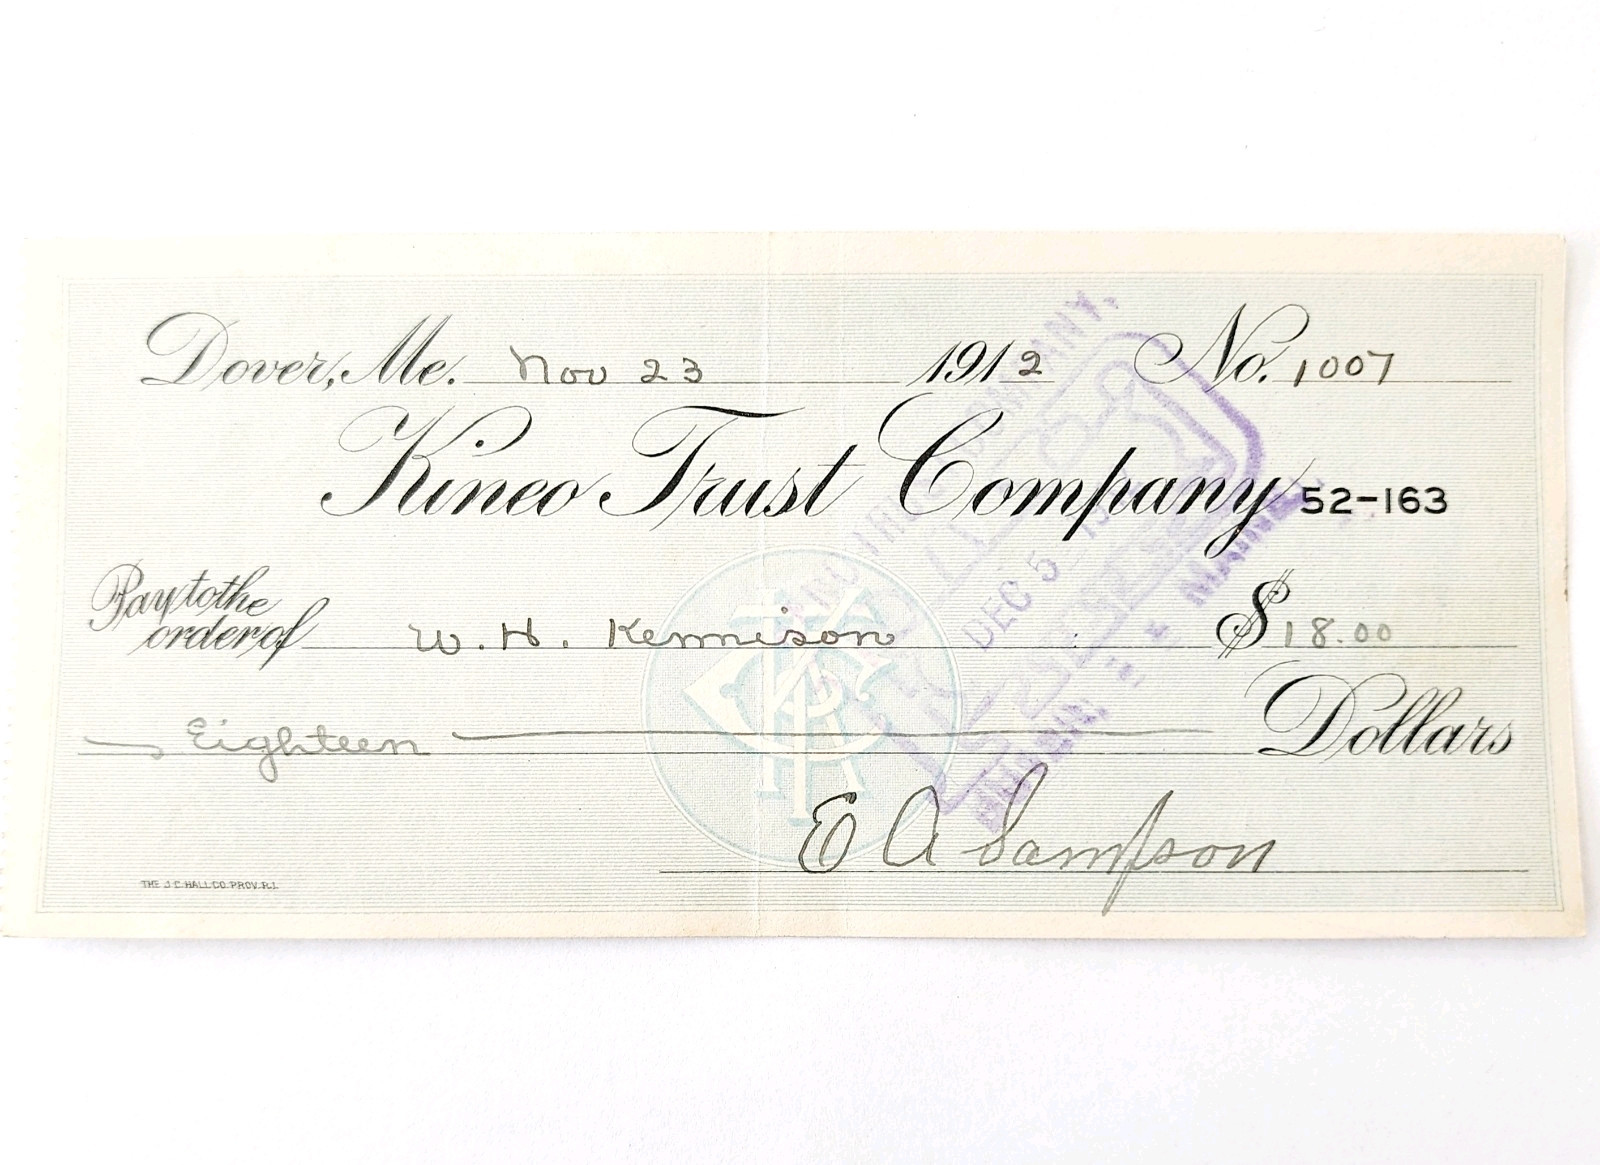 Dover, Me. Nov 23 1912 No. 1007
Kineo Trust Company 52-163
Pay to the order of W. H. Kennison $18.00
Eighteen Dollars
E A Sampson
THE J.C. HALL CO. PROV. R.I.
COMPANY,
DEC 5
MAINE
KTC